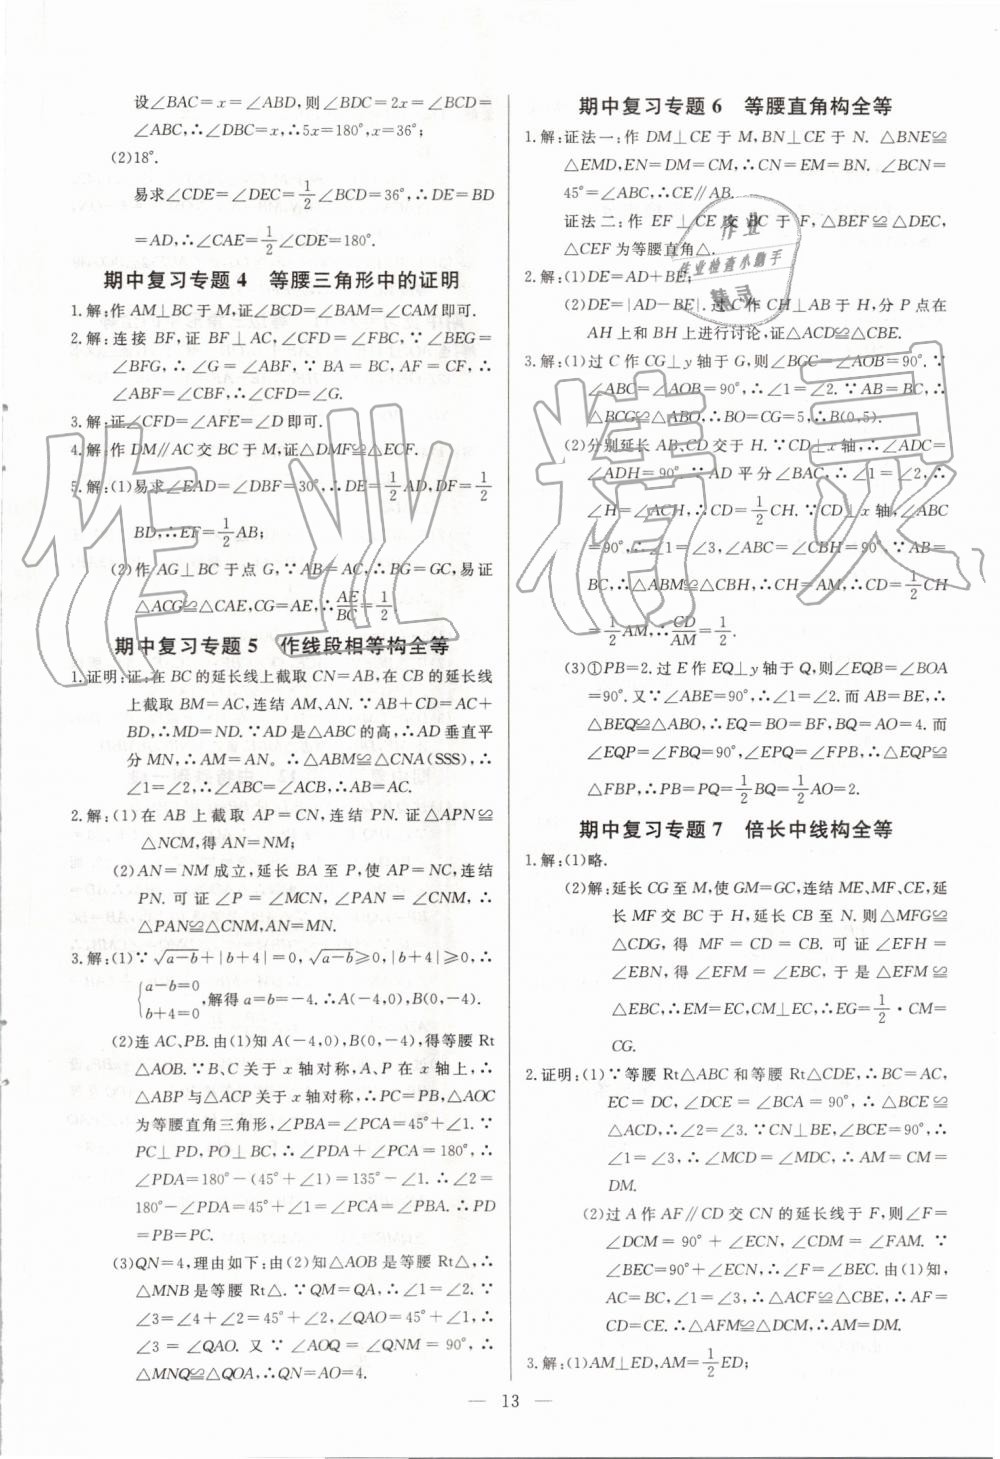 设∠BAC=x=∠ABD,则∠BDC=2x=∠BCD=
∠ABC,∴∠DBC=x,∴5x=180°,x=36°;
(2)18°.
易求∠CDE=∠DEC=1/2∠BCD=36°,∴DE=BD
=AD,∴∠CAE=1/2∠CDE=180°.
期中复习专题4 等腰三角形中的证明
1.解:作AM⊥BC于M,证∠BCD=∠BAM=∠CAM即可.
2.解:连接BF,证BF⊥AC,∠CFD=∠CFB,∵∠BEG=
∠BFG,∴∠G=∠ABF,∵BA=BC,AF=CF,∴
∠ABF=∠CBF,∴∠CFD=∠G.
3.解:证∠CFD=∠AFE=∠D即可.
4.解:作DM∥AC交BC于M,证△DMF≌△ECF.
5.解:(1)易求∠EAD=∠DBF=30°,∴DE=1/2AD,DF=1/2
BD,∴EF=1/2AB;
(2)作AG⊥BC于点G,∵AB=AC,∴BG=GC,易证
△ACG≌△CAE,CG=AE,∴AE/BC=1/2.
期中复习专题5 作线段相等构全等
1.证明:证:在BC的延长线上截取CN=AB,在CB的延长线
上截取BM=AC,连结AM、AN.∵AB+CD=AC+
BD,∴MD=ND.∵AD是△ABC的高,∴AD垂直平
分MN,∴AM=AN.∴△ABM≌△CNA(SSS),∴
∠1=∠2,∴∠ABC=∠ACB,∴AB=AC.
2.解:(1)在AB上截取AP=CN,连结PN.证△APN≌
△NCM,得AN=NM;
(2)AN=NM成立,延长BA至P,使AP=NC,连结
PN.可证∠P=∠MCN,∠PAN=∠CNM,∴
△PAN≌△CNM,AN=MN.
3.解:(1)∵√a-b+|b+4|=0,√a-b≥0,|b+4|≥0,∴
{a-b=0 b+4=0,解得a=b=-4.∴A(-4,0),B(0,-4).
(2)连AC、PB.由(1)知A(-4,0),B(0,-4),得等腰Rt
△AOB.∵B、C关于x轴对称,A、P在x轴上,∴
△ABP与△ACP关于x轴对称,∴PC=PB,△AOC
为等腰直角三角形,∠PBA=∠PCA=45°+∠1.∵
PC⊥PD,PO⊥BC,∴∠PDA+∠PCA=180°-
∠PDA=180°-(45°+∠1)=135°-∠1.∴∠2=
180°-∠PDA=45°+∠1=∠PCA=∠PBA.∴PD
=PB=PC.
(3)QN=4,理由如下:由(2)知△AOB是等腰Rt△,∴
△MNB是等腰Rt△.∵QM=QA,∴∠1=∠2.∵
∠3=∠4+∠2=45°+∠2,∠QAO=45°+∠1,∴
∠3=∠QAO.又∵∠AOQ=∠QNM=90°,∴
△MNQ≌△QOA,∴QN=AO=4.
期中复习专题6 等腰直角构全等
1.解:证法一:作DM⊥CE于M,BN⊥CE于N.△BNE≌
△EMD,EN=DM=CM,∴CN=EM=BN.∠BCN=
45°=∠ABC,∴CE∥AB.
证法二:作EF⊥CE交BC于F,△BEF≌△DEC,
△CEF为等腰直角△.
2.解:(1)DE=AD+BE;
(2)DE=|AD-BE|.过C作CH⊥AB于H,分P点在
AH上和BH上进行讨论,证△ACD≌△CBE.
3.解:(1)过C作CG⊥y轴于G,则∠BGC=∠AOB=90°.∵
∠ABC=∠AOB=90°,∴∠1=∠2.∵AB=BC,∴
△BCG≌△ABO,∴BO=CG=5,∴B(0,5).
(2)分别延长AB、CD交于H.∵CD⊥x轴,∴∠ADC=
∠ADH=90°.∵AD平分∠BAC,∴∠1=∠2,∴
∠H=∠ACH,∴CD=1/2CH.∵CD⊥x轴,∠ABC
=90°,∴∠1=∠3,∠ABC=∠CBH=90°,∵AB=
BC,∴△ABM≌△CBH,∴CH=AM,∴CD=1/2CH
=1/2AM,∴CD/AM=1/2.
(3)①PB=2.过E作EQ⊥y轴于Q,则∠EQB=∠BOA
=90°.又∵∠ABE=90°,∴∠1=∠2.而AB=BE,∴
△BEQ≌△ABO,∴EQ=BO=BF,BQ=AO=4.而
∠EQP=∠FBQ=90°,∠EPQ=∠FPB,∴△EQP≌
△FBP,∴PB=PQ=1/2BQ=1/2AO=2.
期中复习专题7 倍长中线构全等
1.解:(1)略.
(2)解:延长CG至M,使GM=GC,连结ME、MF、CE,延
长MF交BC于H,延长CB至N.则△MFG≌
△CDG,得MF=CD=CB.可证∠EFH=
∠EBN,得∠EFM=∠EBC,于是△EFM≌
△EBC,∴EM=EC,CM⊥EC,∴EG=1/2·CM=
CG.
2.证明:(1)∵等腰Rt△ABC和等腰Rt△CDE,∴BC=AC,
EC=DC,∠DCE=∠BCA=90°,∴△BCE≌
△ACD,∴∠2=∠3.∵CN⊥BE,∠BCE=90°,∴
∠1=∠3,∴∠MCD=∠MDC,∴AM=CM=
DM.
(2)过A作AF∥CD交CN的延长线于F,则∠F=
∠DCM=90°+∠ECN,∠CDM=∠FAM.∵
∠BEC=90°+∠ECN,∴∠F=∠BEC.由(1)知,
AC=BC,∠1=∠3,∴△ACF≌△CBE,∴AF=
CD=CE.∴△AFM≌△DCM,∴AM=DM.
3.解:(1)AM⊥ED,AM=1/2ED;
— 13 —
作业
作业检查小助手
作业精灵